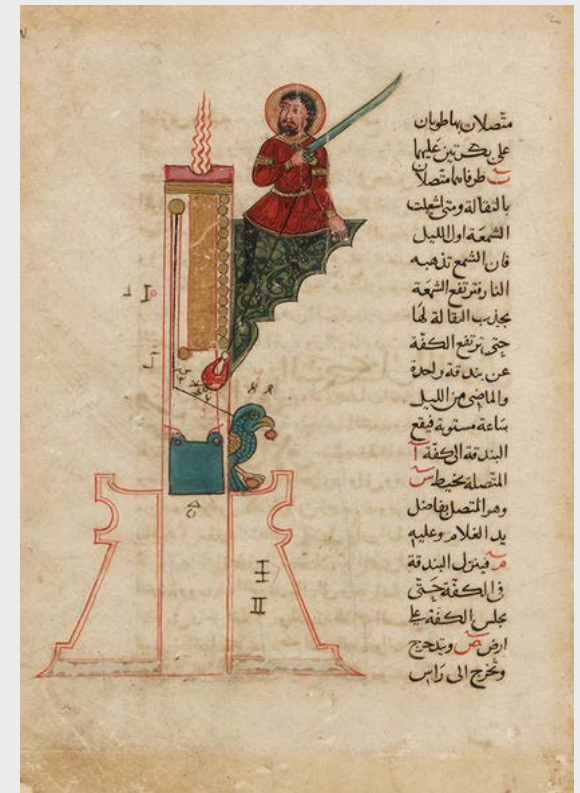 متصلان بها طوبان
على بكرتين عليهما
س طرفاهما متصلان
بالثقالة ومتى اشعلت
الشمعة اول الليل
فان الشمع تذهبه
النار فترتفع الشمعة
بجذب الثقالة لها
حتى ترتفع الكفة
عن بندقة واحدة
والماضى من الليل
ساعة مستوية فيقع
البندقة الى كفة آ
المتصلة بخيط س
وهو المتصل بفاضل
يد الغلام وعليه
فينزل البندقة
فى الكفة حتى
يجلس الكفة على
ارض ص ويتدحرج
وتخرج الى راس